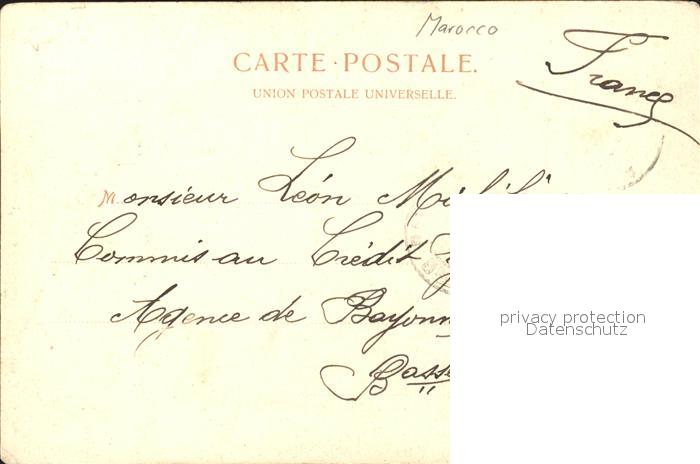 Marocco
CARTE · POSTALE.
UNION POSTALE UNIVERSELLE.
France
Monsieur Léon
Commis au Crédit
Agence de Bayonn
Basse
privacy protection
Datenschutz